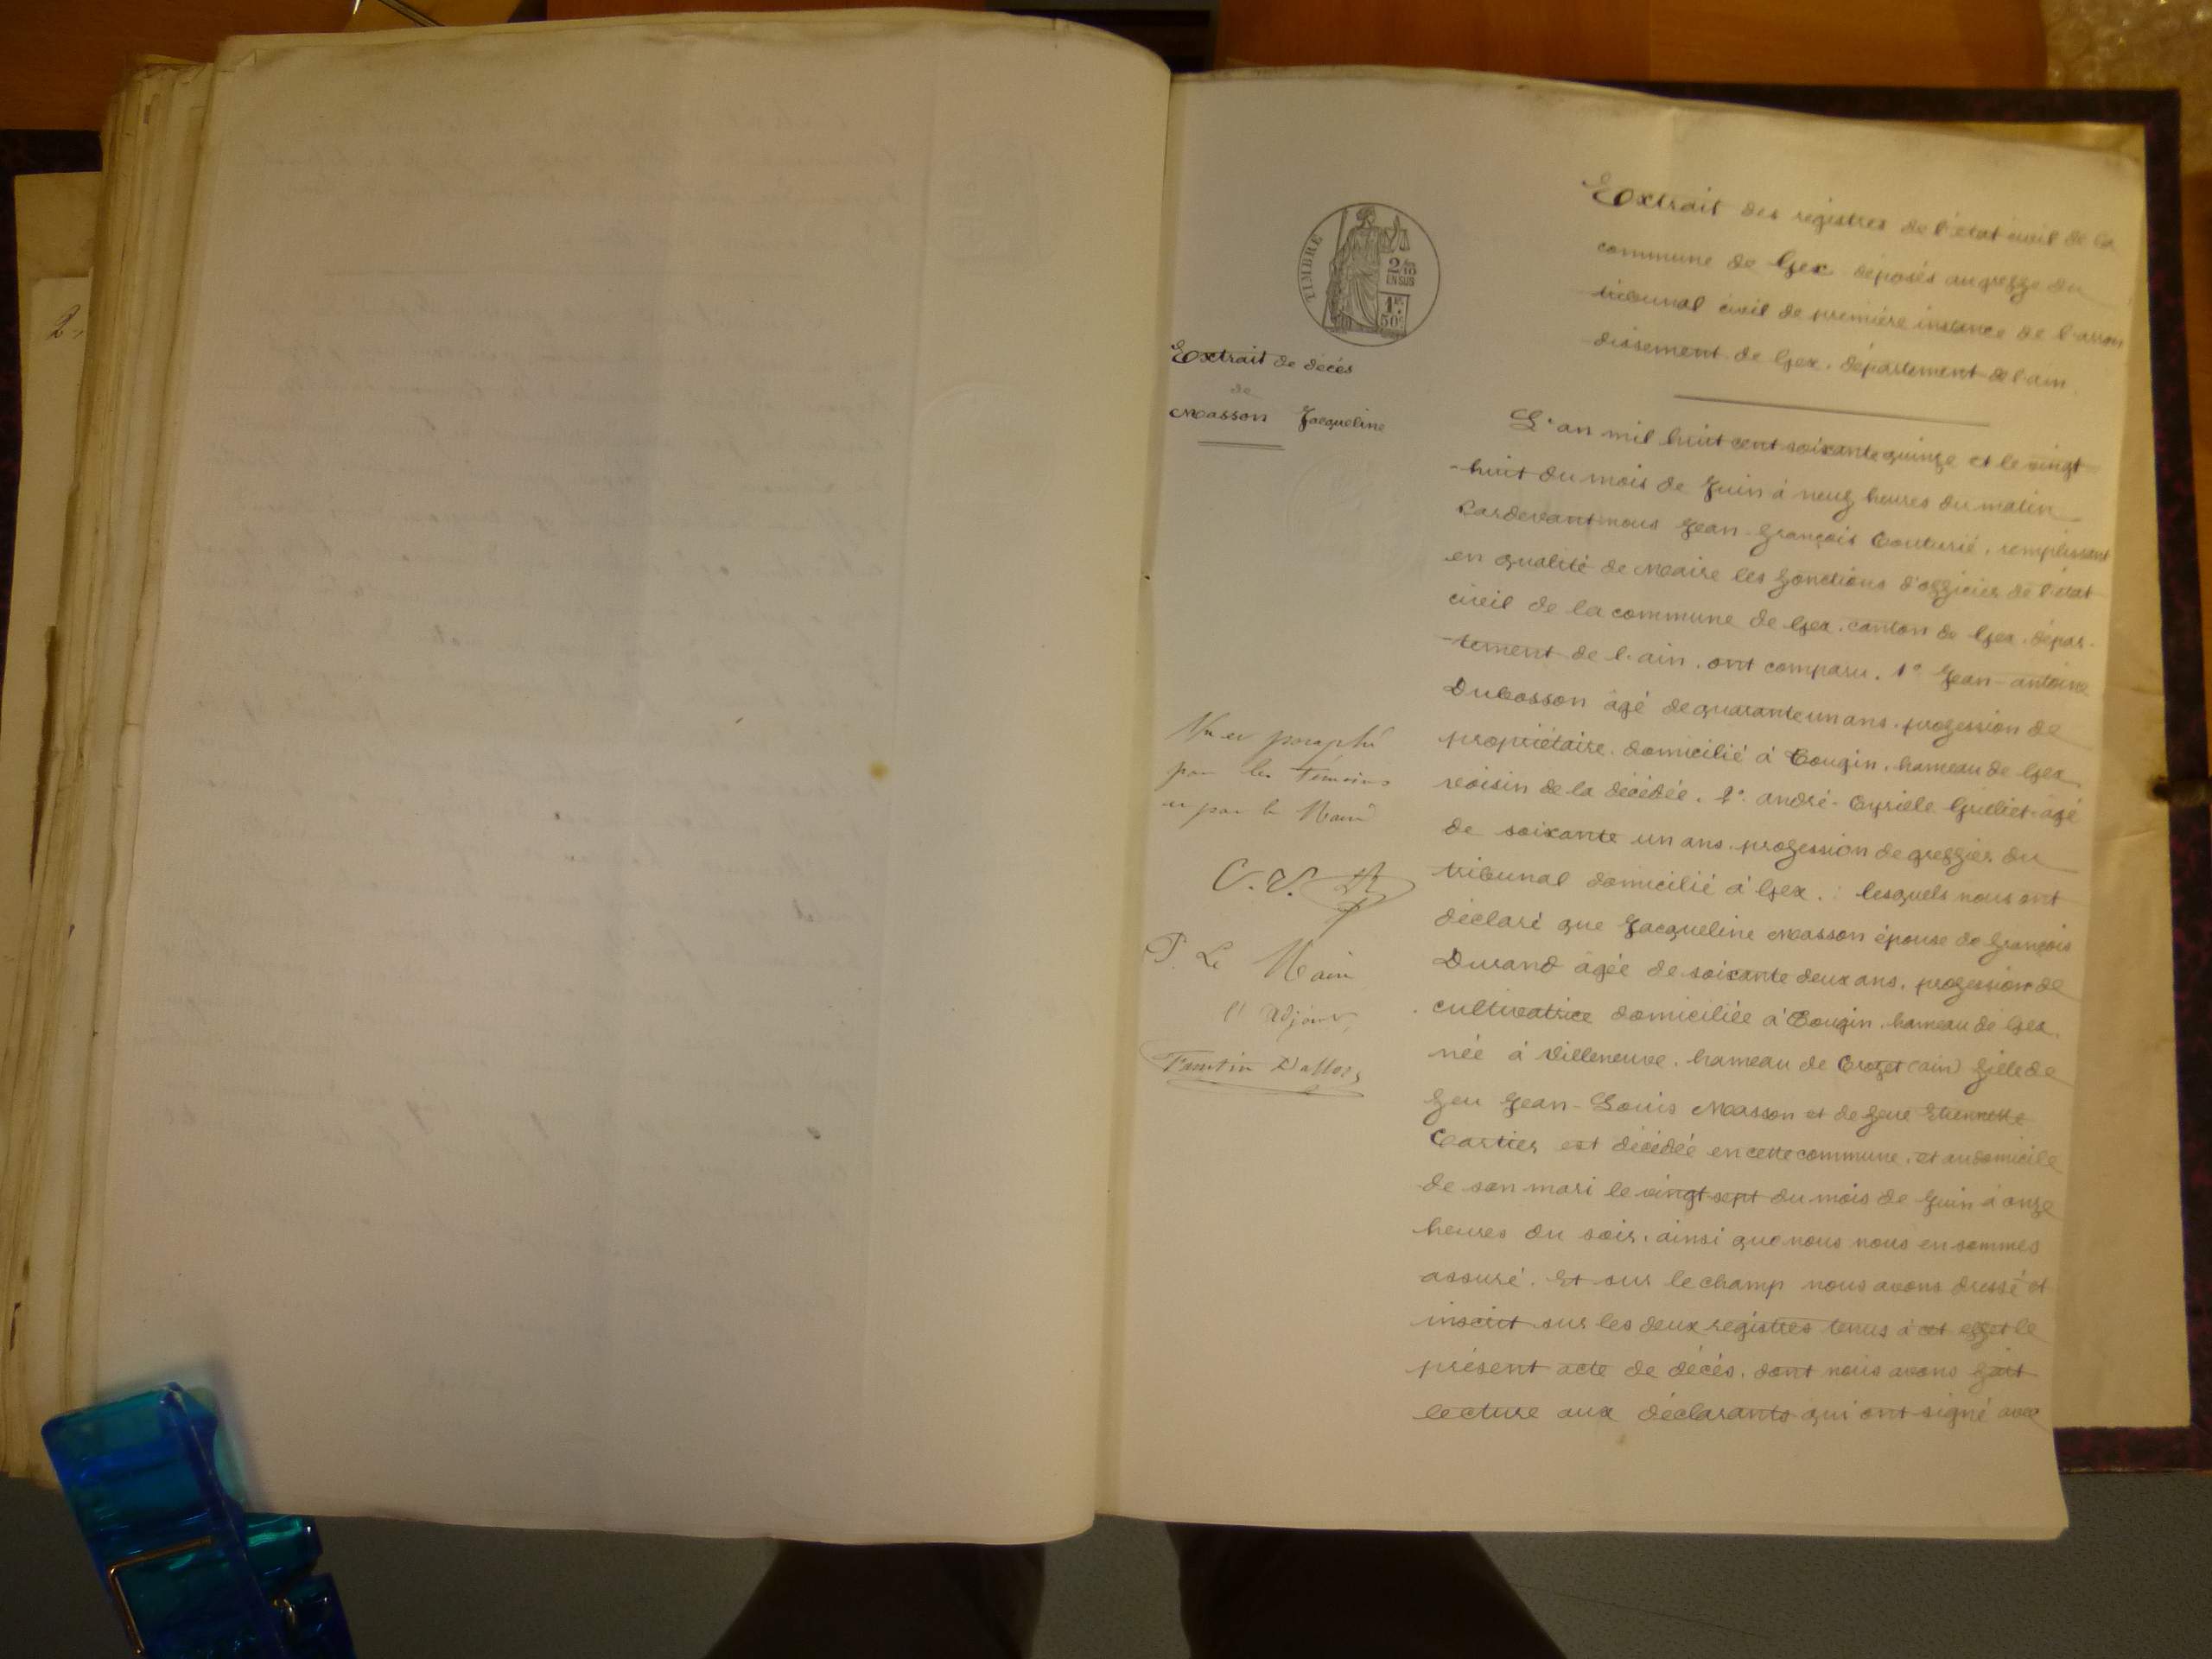 2.
TIMBRE
2/10
EN SUS
1F.
50c
Extrait de décès
de
Masson Jacqueline
Vu et paraphé
par les témoins
et par le Maire
P. Le Maire
l'adjoint
Extrait des régistres de l'état civil de la
commune de Gex déposés au greffe du
tribunal civil de première instance de l'arron
dissement de Gex, département de l'ain.
L'an mil huit cent soixante quinze et le vingt
-huit du mois de Juin à neuf heures du matin
Pardevant nous Jean François Couturié, remplissant
en qualité de Maire les fonctions d'officier de l'état
civil de la commune de Gex, canton de Gex, dépar-
-tement de l'ain, ont comparu, 1° Jean-antoine
Dubosson âgé de quarante un ans, profession de
propriétaire, domicilié à Tougin, hameau de Gex
voisin de la décédée, 2°. andré-Cyrille Guillet âgé
de soixante un ans, profession de greffier du
tribunal domicilié à Gex. : lesquels nous ont
déclaré que Jacqueline Masson épouse de François
Durand âgée de soixante deux ans, profession de
cultivatrice domiciliée à Tougin, hameau de Gex,
née à Villeneuve, hameau de Crozet (ain) fille de
feu Jean-Louis Masson et de feue Etiennette
Cartier est décédée en cette commune, et au domicile
de son mari le vingt sept du mois de Juin à onze
heures du soir, ainsi que nous nous en sommes
assuré. Et sur le champ nous avons dressé et
inscrit sur les deux régistres tenus à cet effet le
présent acte de décès, dont nous avons fait
lecture aux déclarants qui ont signé avec